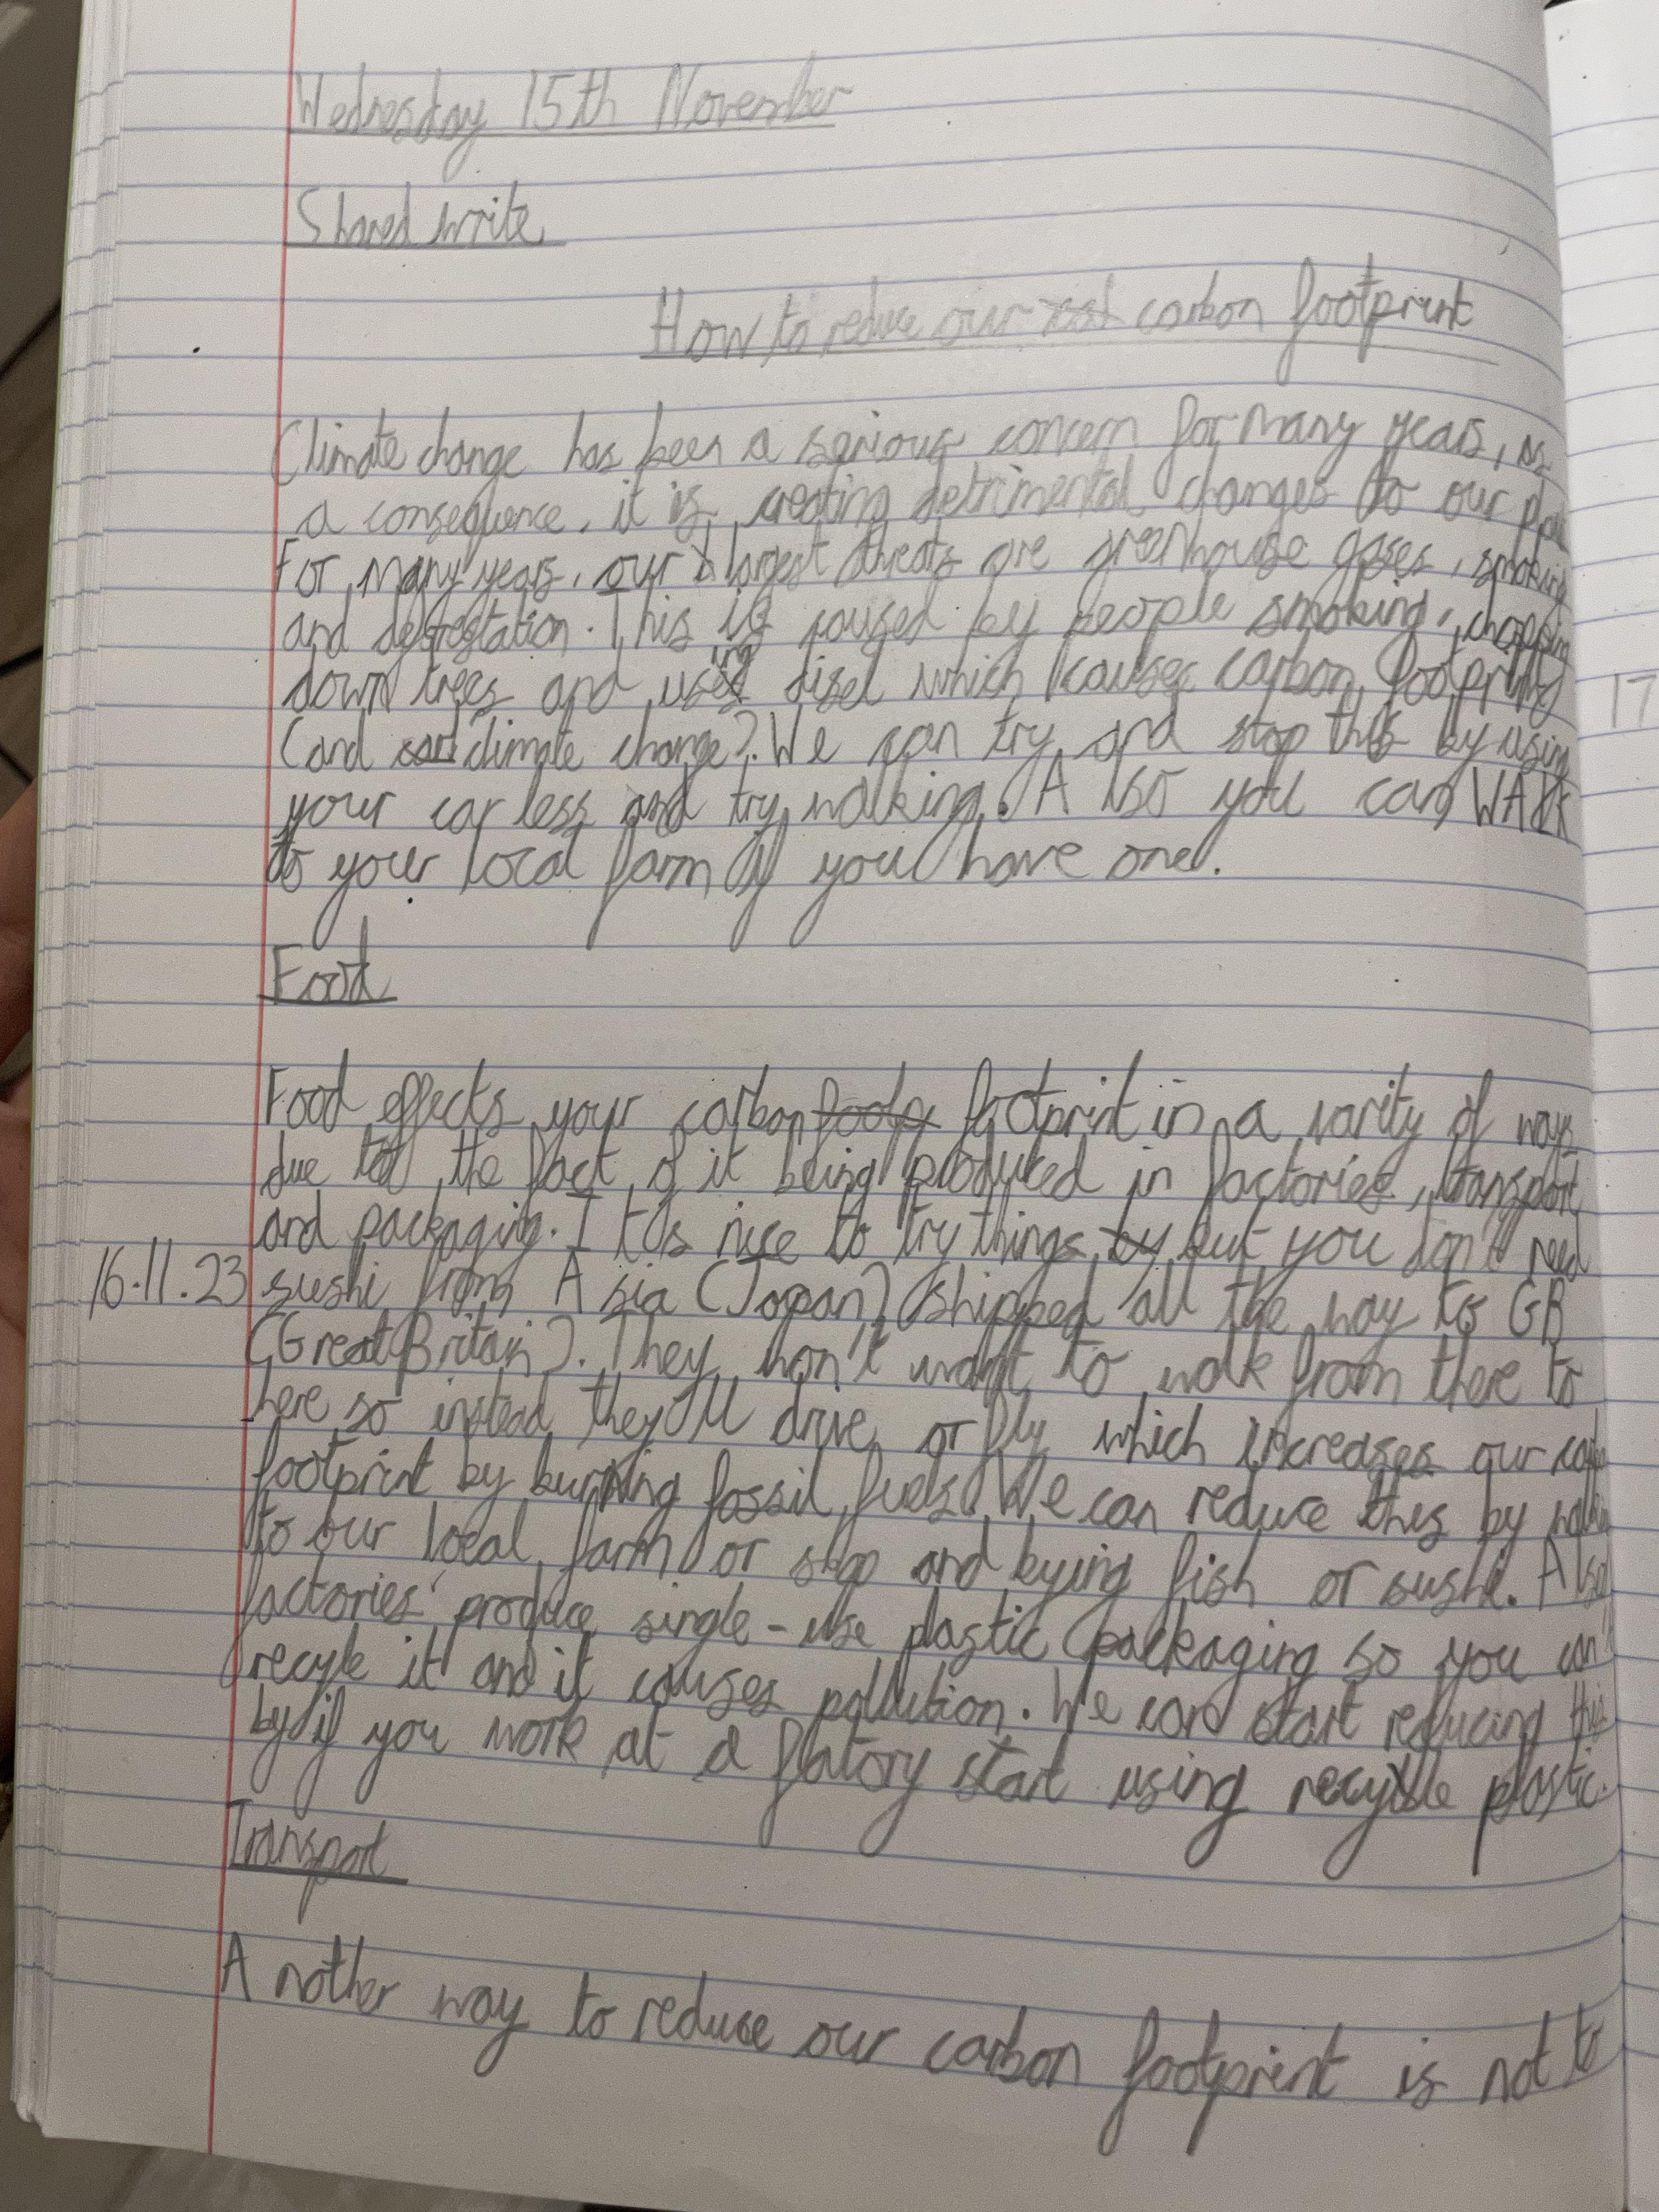 Wednesday 15th November
Shared write
How to reduce our carbon footprint
Climate change has been a serious concern for many years, as
a consequence, it is creating detrimental changes to our
For many years, our largest threats are greenhouse gases, smoking
and deforestation. This is caused by people smoking, chopping
down trees and using disel which causes carbon footprint
(and climate change). We can try and stop this by using
your car less and try walking. Also you can WALK
to your local farm if you have one.
Food
Food effects your carbon footprint in a varity of ways
due to the fact of it being produced in factories, transport
and packaging. It's nice to try things but you don't need
16.11.23 sushi from Asia (Japan) shipped all the way to GB
(Great Britain). They won't want to walk from there to
here so instead they'll drive or fly which increases our carbon
footprint by burning fossil fuels. We can reduce this by walking
to our local farm or shop and bying fish or sushi. Also
factories produce single-use plastic packaging so you can't
recyle it and it causes pollution. We can start reducing this
by if you work at a fatory start using recycle plastic.
Transport
Another way to reduce our carbon footprint is not to
17